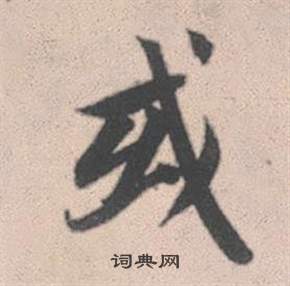 或
词典网